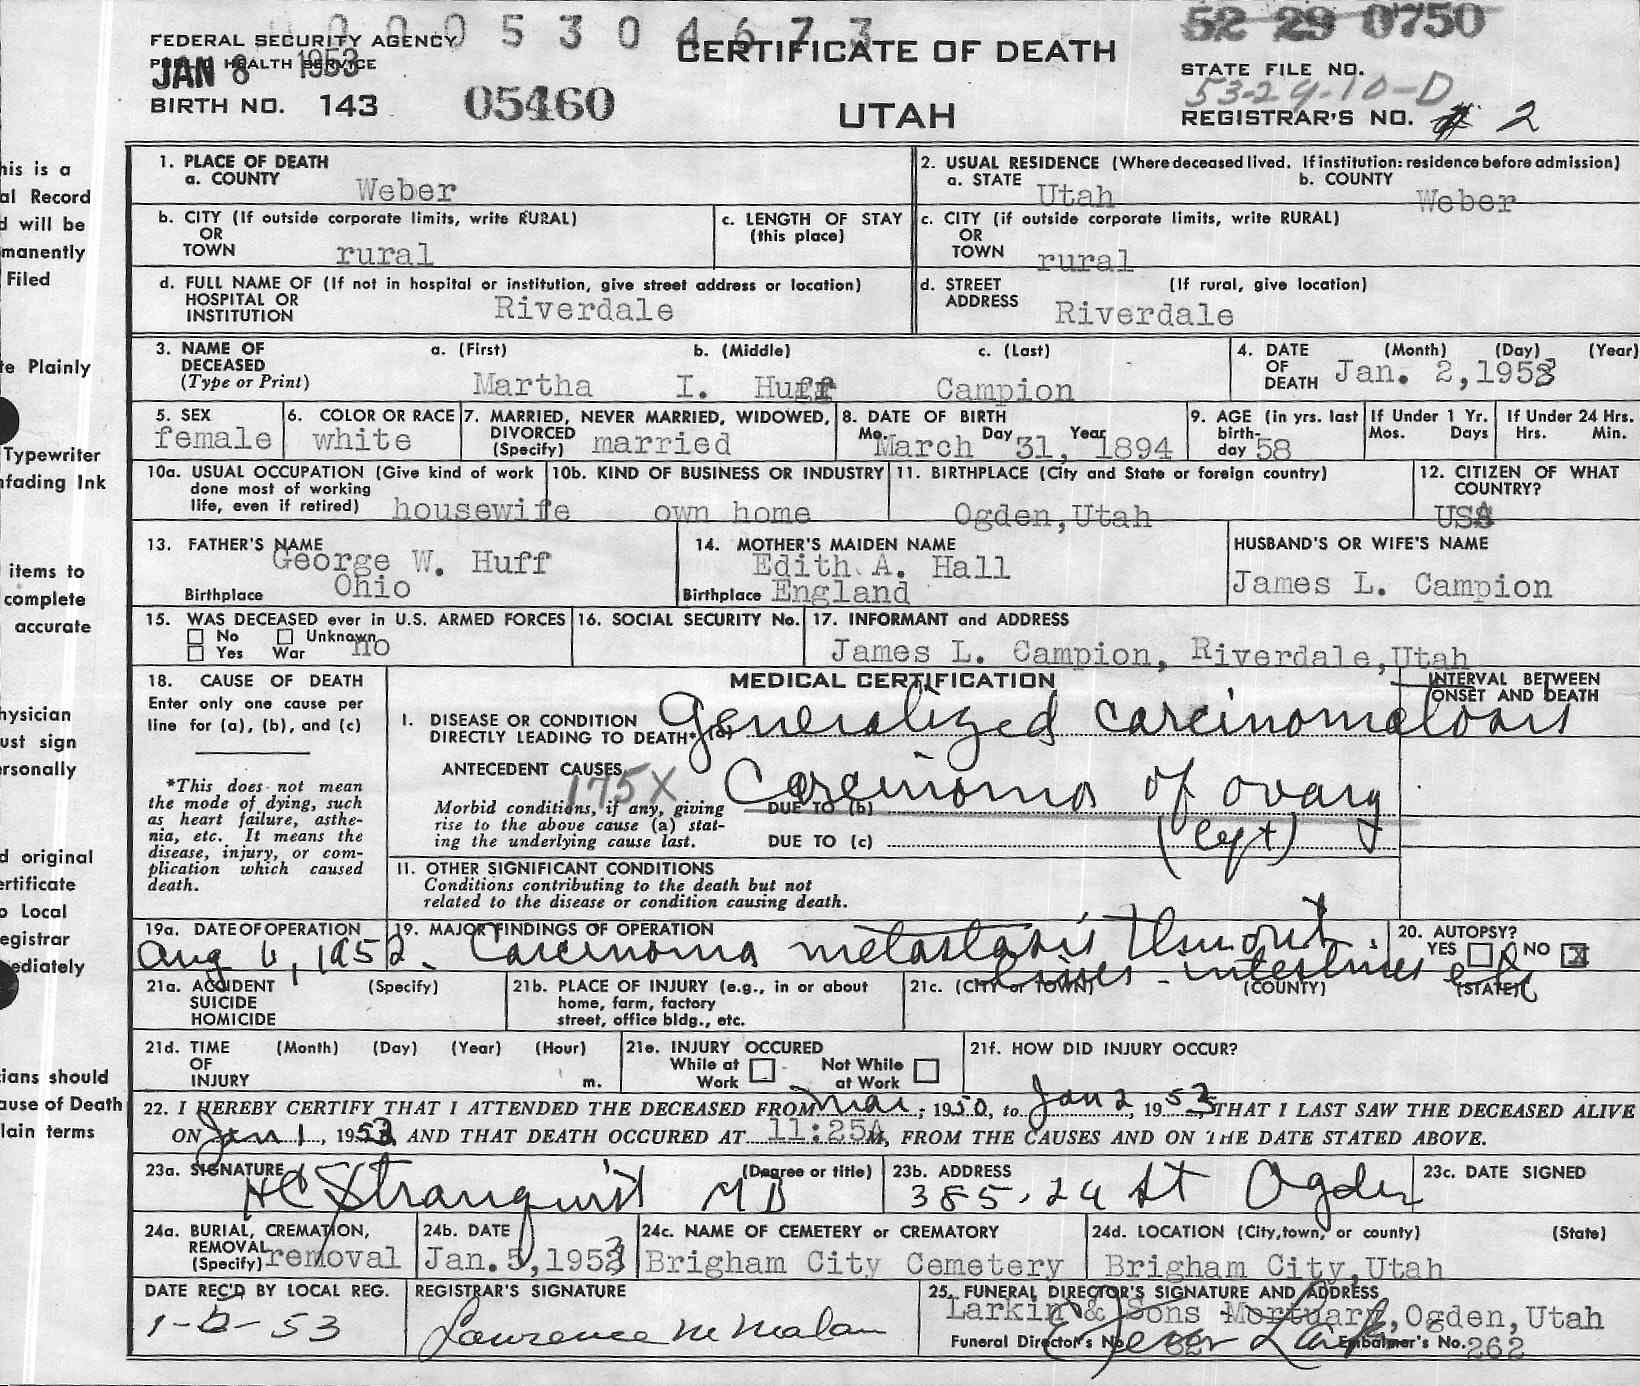 0 0 0 5 3 0 4 6 7 3
52 29 0750
FEDERAL SECURITY AGENCY
PUBLIC HEALTH SERVICE
JAN 8 1953
CERTIFICATE OF DEATH
STATE FILE NO.
53-29-10-D
BIRTH NO. 143 05460
UTAH
REGISTRAR'S NO. # 2
his is a
al Record
d will be
manently
Filed
te Plainly
Typewriter
nfading Ink
items to
complete
accurate
hysician
ust sign
ersonally
d original
ertificate
o Local
egistrar
ediately
ians should
ause of Death
lain terms
1. PLACE OF DEATH
a. COUNTY Weber
2. USUAL RESIDENCE (Where deceased lived. If institution: residence before admission)
a. STATE Utah b. COUNTY Weber
b. CITY (If outside corporate limits, write RURAL)
OR
TOWN rural
c. LENGTH OF STAY
(this place)
c. CITY (if outside corporate limits, write RURAL)
OR
TOWN rural
d. FULL NAME OF (If not in hospital or institution, give street address or location)
HOSPITAL OR
INSTITUTION Riverdale
d. STREET (If rural, give location)
ADDRESS Riverdale
3. NAME OF DECEASED
(Type or Print)
a. (First) b. (Middle) c. (Last)
Martha I. Huff Campion
4. DATE OF DEATH (Month) (Day) (Year)
Jan. 2, 1953
5. SEX
female
6. COLOR OR RACE
white
7. MARRIED, NEVER MARRIED, WIDOWED,
DIVORCED
(Specify) married
8. DATE OF BIRTH
Mo. Day Year
March 31, 1894
9. AGE (in yrs. last
birth-
day 58
If Under 1 Yr.
Mos. Days
If Under 24 Hrs.
Hrs. Min.
10a. USUAL OCCUPATION (Give kind of work
done most of working
life, even if retired) housewife
10b. KIND OF BUSINESS OR INDUSTRY
own home
11. BIRTHPLACE (City and State or foreign country)
Ogden, Utah
12. CITIZEN OF WHAT
COUNTRY?
USA
13. FATHER'S NAME
George W. Huff
Birthplace Ohio
14. MOTHER'S MAIDEN NAME
Edith A. Hall
Birthplace England
HUSBAND'S OR WIFE'S NAME
James L. Campion
15. WAS DECEASED ever in U.S. ARMED FORCES
No Unknown
Yes War no
16. SOCIAL SECURITY No.
17. INFORMANT and ADDRESS
James L. Campion, Riverdale, Utah
18. CAUSE OF DEATH
Enter only one cause per
line for (a), (b), and (c)
*This does not mean
the mode of dying, such
as heart failure, asthe-
nia, etc. It means the
disease, injury, or com-
plication which caused
death.
MEDICAL CERTIFICATION
INTERVAL BETWEEN
ONSET AND DEATH
I. DISEASE OR CONDITION
DIRECTLY LEADING TO DEATH* (a) Generalized carcinomatosis
ANTECEDENT CAUSES
175X
Morbid conditions, if any, giving
rise to the above cause (a) stat-
ing the underlying cause last.
DUE TO (b) Carcinoma of ovary
(left)
DUE TO (c)
II. OTHER SIGNIFICANT CONDITIONS
Conditions contributing to the death but not
related to the disease or condition causing death.
19a. DATE OF OPERATION
Aug 6, 1952
19. MAJOR FINDINGS OF OPERATION
Carcinoma metastasis thruout
- intestines etc
20. AUTOPSY?
YES NO X
21a. ACCIDENT (Specify)
SUICIDE
HOMICIDE
21b. PLACE OF INJURY (e.g., in or about
home, farm, factory
street, office bldg., etc.
21c. (CITY or TOWN) (COUNTY) (STATE)
21d. TIME (Month) (Day) (Year) (Hour)
OF
INJURY m.
21e. INJURY OCCURED
While at Not While
Work at Work
21f. HOW DID INJURY OCCUR?
22. I HEREBY CERTIFY THAT I ATTENDED THE DECEASED FROM Mar, 1950, to Jan 2, 1953, THAT I LAST SAW THE DECEASED ALIVE
ON Jan 1, 1953, AND THAT DEATH OCCURED AT 11:25A M, FROM THE CAUSES AND ON THE DATE STATED ABOVE.
23a. SIGNATURE (Degree or title)
HC Stranquist MD
23b. ADDRESS
385-24 St Ogden
23c. DATE SIGNED
24a. BURIAL, CREMATION,
REMOVAL
(Specify) removal
24b. DATE
Jan. 5, 1953
24c. NAME OF CEMETERY or CREMATORY
Brigham City Cemetery
24d. LOCATION (City, town, or county) (State)
Brigham City, Utah
DATE REC'D BY LOCAL REG.
REGISTRAR'S SIGNATURE
Lawrence M Malan
25. FUNERAL DIRECTOR'S SIGNATURE AND ADDRESS
Larkin & Sons Mortuary, Ogden, Utah
Funeral Director's No. Embalmer's No. 262